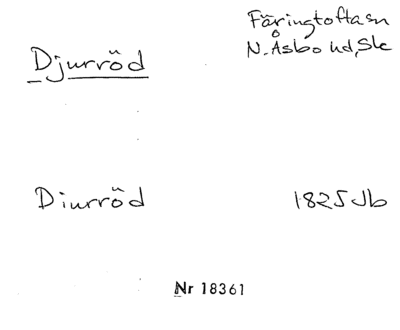 Färingtoftasn
N. Åsbo hd, Sk
Djurröd
Diurröd
1825 Jb
Nr 18361